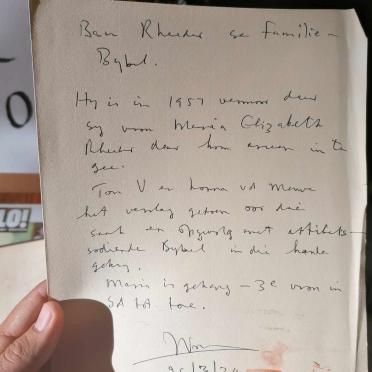 Ben Rheeder se Familie-
Bybel.
Hy is in 1957 vermoor deur
sy vrou Maria Elizabeth
Rheeder deur hom arseen in te
gee.
Tom V en Lonna vd Merwe
het verslag gedoen oor die
saak en
Bybel in die hande
gekry.
Maria is gehang – 3e vrou in
SA tot toe.
O
LO!